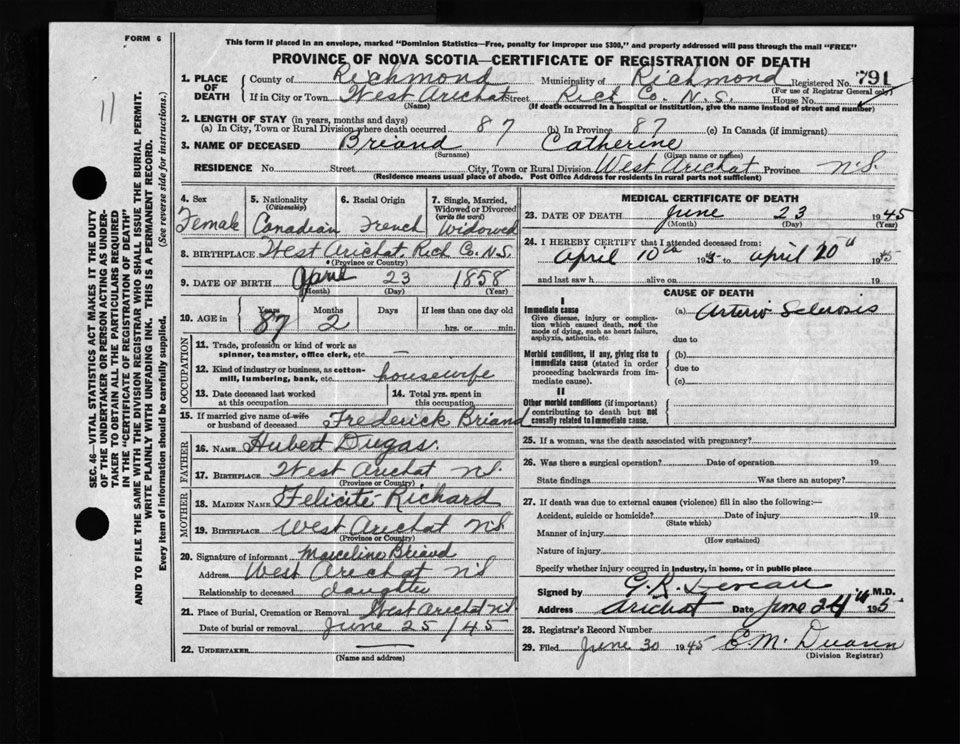 FORM 6
11
This form if placed in an envelope, marked "Dominion Statistics—Free, penalty for improper use $300," and properly addressed will pass through the mail "FREE"
PROVINCE OF NOVA SCOTIA—CERTIFICATE OF REGISTRATION OF DEATH
1. PLACE OF DEATH County of Richmond Municipality of Richmond Registered No. 791
(For use of Registrar General only)
If in City or Town West Arichat Street Rich Co. N.S. House No.
(Name) (If death occurred in a hospital or institution, give the name instead of street and number)
2. LENGTH OF STAY (in years, months and days)
(a) In City, Town or Rural Division where death occurred 87 (b) In Province 87 (c) In Canada (if immigrant)
3. NAME OF DECEASED Briand Catherine
(Surname) (Given name or names)
RESIDENCE No. Street City, Town or Rural Division West Arichat Province N.S.
(Residence means usual place of abode. Post Office Address for residents in rural parts not sufficient)
4. Sex Female
5. Nationality (Citizenship) Canadian
6. Racial Origin French
7. Single, Married, Widowed or Divorced (write the word) Widowed
8. BIRTHPLACE West Arichat Rich Co. N.S.
(Province or Country)
9. DATE OF BIRTH April 23 1858
(Month) (Day) (Year)
10. AGE in Years 87 Months 2 Days If less than one day old hrs. or min.
OCCUPATION
11. Trade, profession or kind of work as spinner, teamster, office clerk, etc.
12. Kind of industry or business, as cotton-mill, lumbering, bank, etc. housewife
13. Date deceased last worked at this occupation
14. Total yrs. spent in this occupation
15. If married give name of wife or husband of deceased Frederick Briand
FATHER
16. NAME Hubert Dugas
17. BIRTHPLACE West Arichat N.S.
(Province or Country)
MOTHER
18. MAIDEN NAME Felicite Richard
19. BIRTHPLACE West Arichat N.S.
(Province or Country)
20. Signature of informant Marceline Briand
Address West Arichat N.S
Relationship to deceased daughter
21. Place of Burial, Cremation or Removal West Arichat N.S
Date of burial or removal June 25/45
22. UNDERTAKER
(Name and address)
MEDICAL CERTIFICATE OF DEATH
23. DATE OF DEATH June 23 1945
(Month) (Day) (Year)
24. I HEREBY CERTIFY that I attended deceased from:
April 10th 1945 to April 20th 1945
and last saw h alive on 19
CAUSE OF DEATH
I
Immediate cause
Give disease, injury or complication which caused death, not the mode of dying, such as heart failure, asphyxia, asthenia, etc
(a) Arterio Sclerosis
due to
Morbid conditions, if any, giving rise to immediate cause (stated in order proceeding backwards from immediate cause).
(b)
due to
(c)
II
Other morbid conditions (if important) contributing to death but not causally related to immediate cause.
25. If a woman, was the death associated with pregnancy?
26. Was there a surgical operation? Date of operation 19
State findings Was there an autopsy?
27. If death was due to external causes (violence) fill in also the following:—
Accident, suicide or homicide? Date of injury 19
(State which)
Manner of injury
(How sustained)
Nature of injury
Specify whether injury occurred in industry, in home, or in public place
Signed by C.R. M.D.
Address Arichat Date June 24th 1945
28. Registrar's Record Number
29. Filed June 30 1945 E M.
(Division Registrar)
SEC. 46—VITAL STATISTICS ACT MAKES IT THE DUTY
OF THE UNDERTAKER OR PERSON ACTING AS UNDER-
TAKER TO OBTAIN ALL THE PARTICULARS REQUIRED
IN THE "CERTIFICATE OF REGISTRATION OF DEATH"
AND TO FILE THE SAME WITH THE DIVISION REGISTRAR WHO SHALL ISSUE THE BURIAL PERMIT.
WRITE PLAINLY WITH UNFADING INK. THIS IS A PERMANENT RECORD.
Every item of information should be carefully supplied. (See reverse side for instructions.)